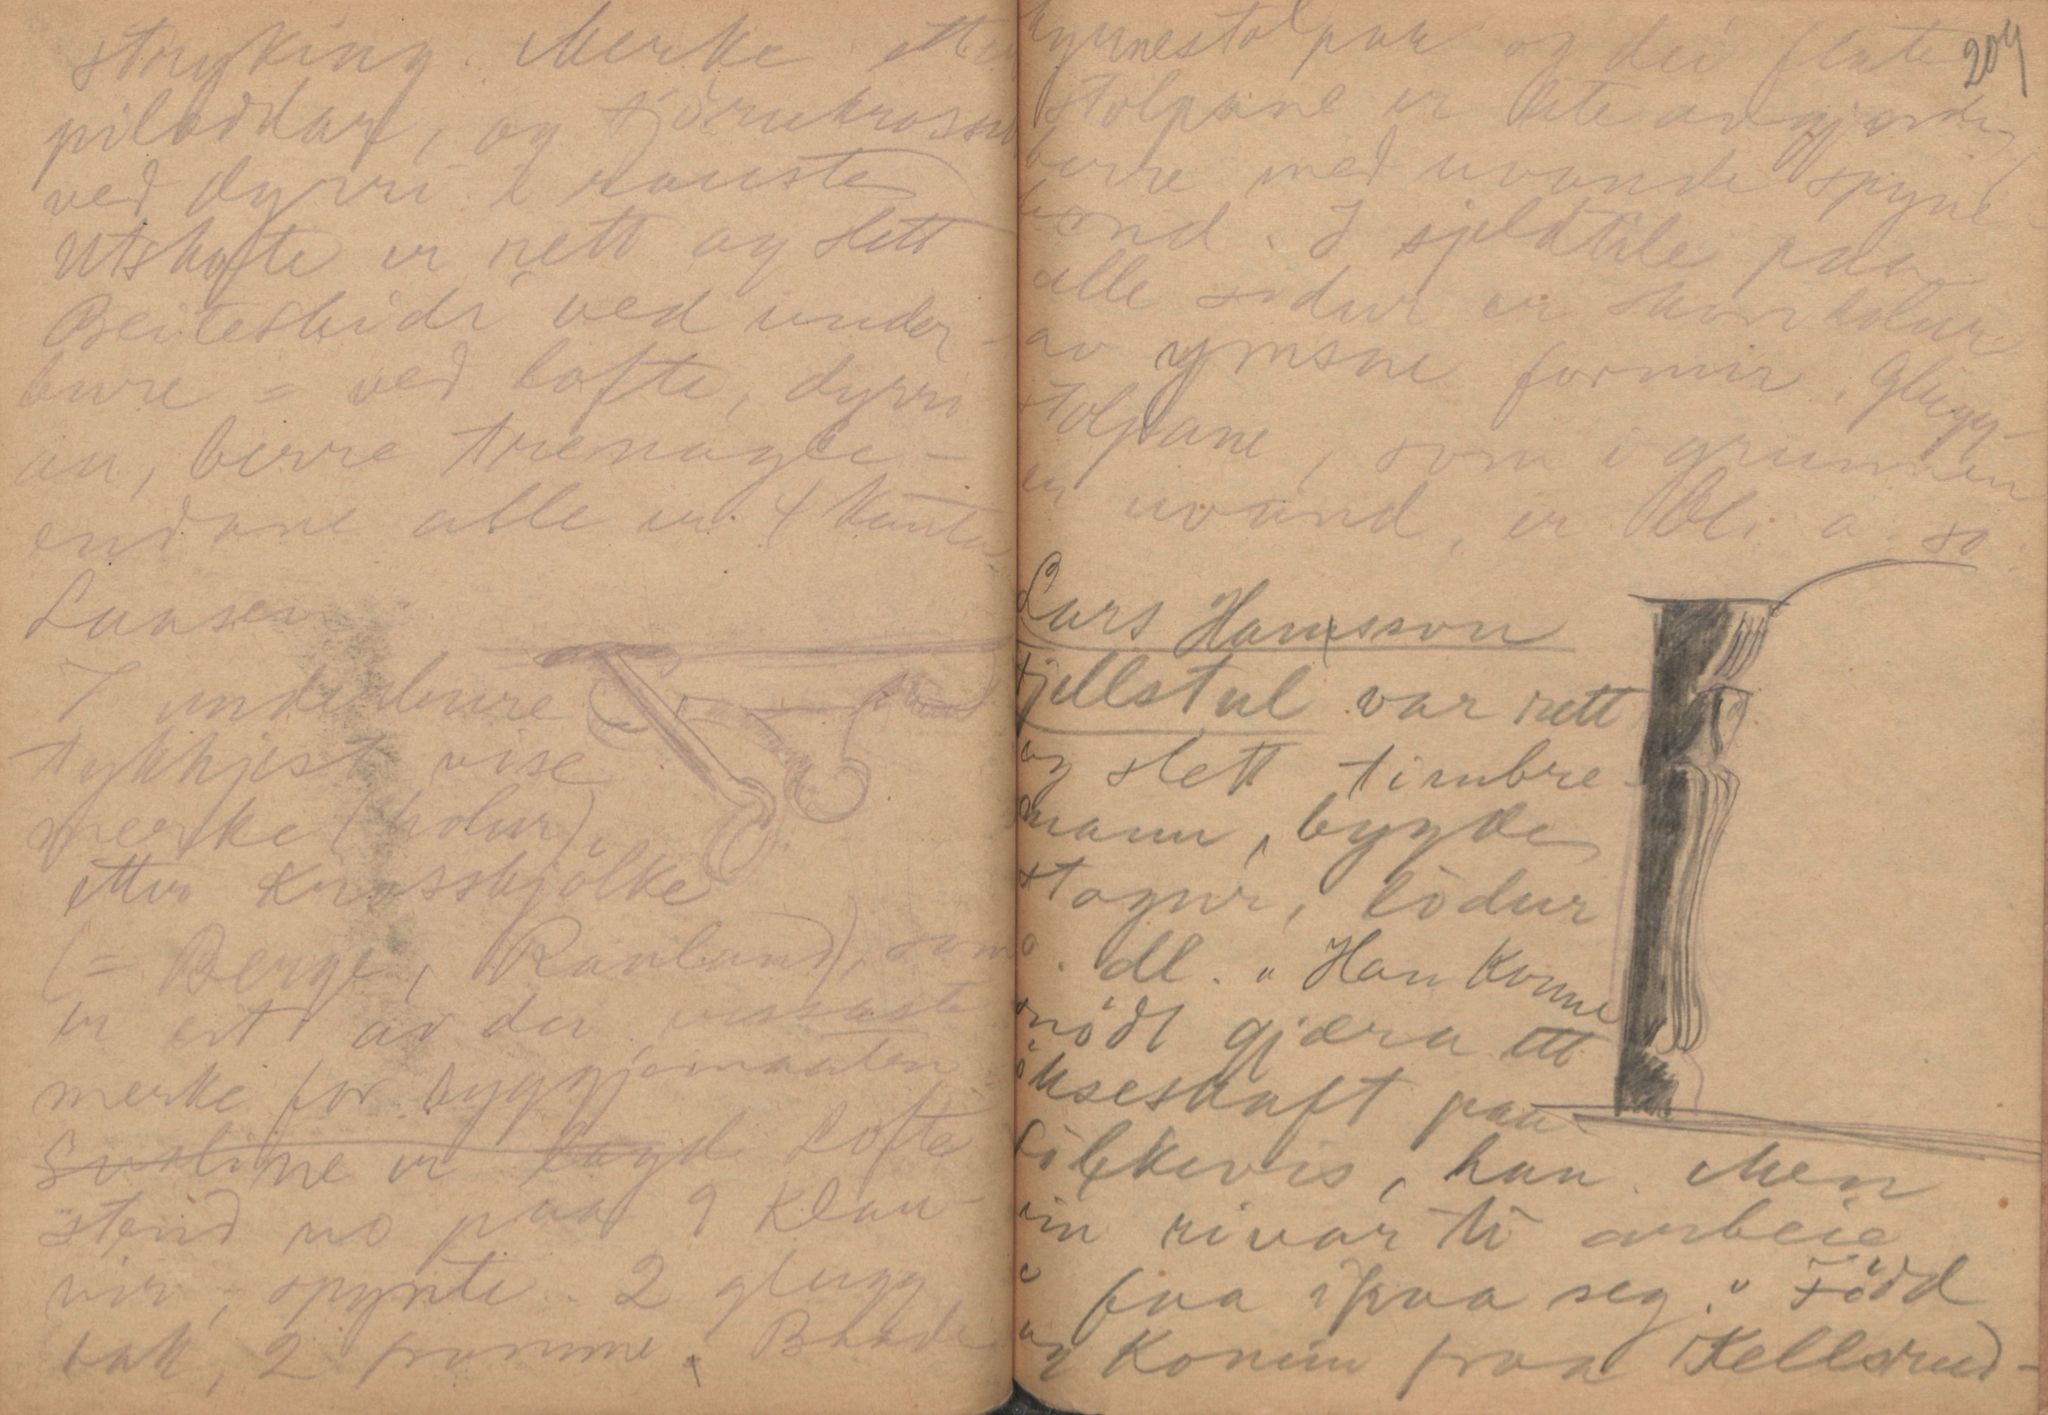 stryking. Merke etter
piloddar, og tjørukrossar
ved dyrri i rauste
Utskofte er rett og slett
Beiteskidi ved under-
bure = ved lofte, dyrri
au, berre trenagle-
endane alle er 4 kanta
Laasen
I underbure
tykkjest vise
merke (holur)
etter krossbjølke
(= Berge, Rauland), som
er eit av dei vissaste
merke for byggjemaaten
Svaline er bygd Lofte
stend no paa 9 klau-
vir, spynte. 2 glugg
bak, 2 framme. Baade
204
hyrnestolpar og dei flate
stolpane er lite avgjorde,
berre med uvande spyne-
bond. I sjeltile paa
alle sidur er skorholur
av ymsne formir. Glugg-
stolpane, som i grunnen
er uvand, er bl. a. so
Lars Hansson
Fjellstul var rett
og slett timbre-
mann, bygde
stogur, lødur
o. dl. "Han konne
snødt gjæra ett
økseskaft paa
folkevis, han. Men
ein rivar ti arbeie
faa ifraa seg." Fødd
og komin fraa Kellsrud-